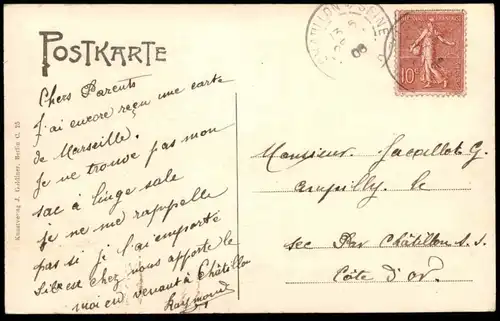 POSTKARTE
CHATILLON S SEINE
08
10c
Chers Parents
J'ai encore reçu une carte
de Marseille.
Je ne trouve pas mon
sac à linge sale
je ne me rappelle
pas si je l'ai emporté
S'il est chez nous apporte le
moi en venant à Châtillon
Raymond
Monsieur Jacaillot G.
Ampilly le
sec Par Châtillon s. s.
Côte d'or.
Kunstverlag J. Goldiner, Berlin C. 25